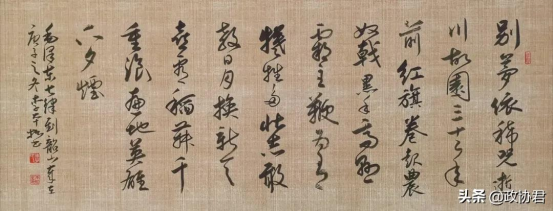 別夢依稀咒逝
川故園三十二年
前紅旗卷起農
奴戟黑手高懸
霸主鞭為有
犧牲多壯志敢
教日月換新天
喜看稻菽千
重浪遍地英雄
下夕煙
毛澤東七律到韶山
庚子之冬
头条 @政协君